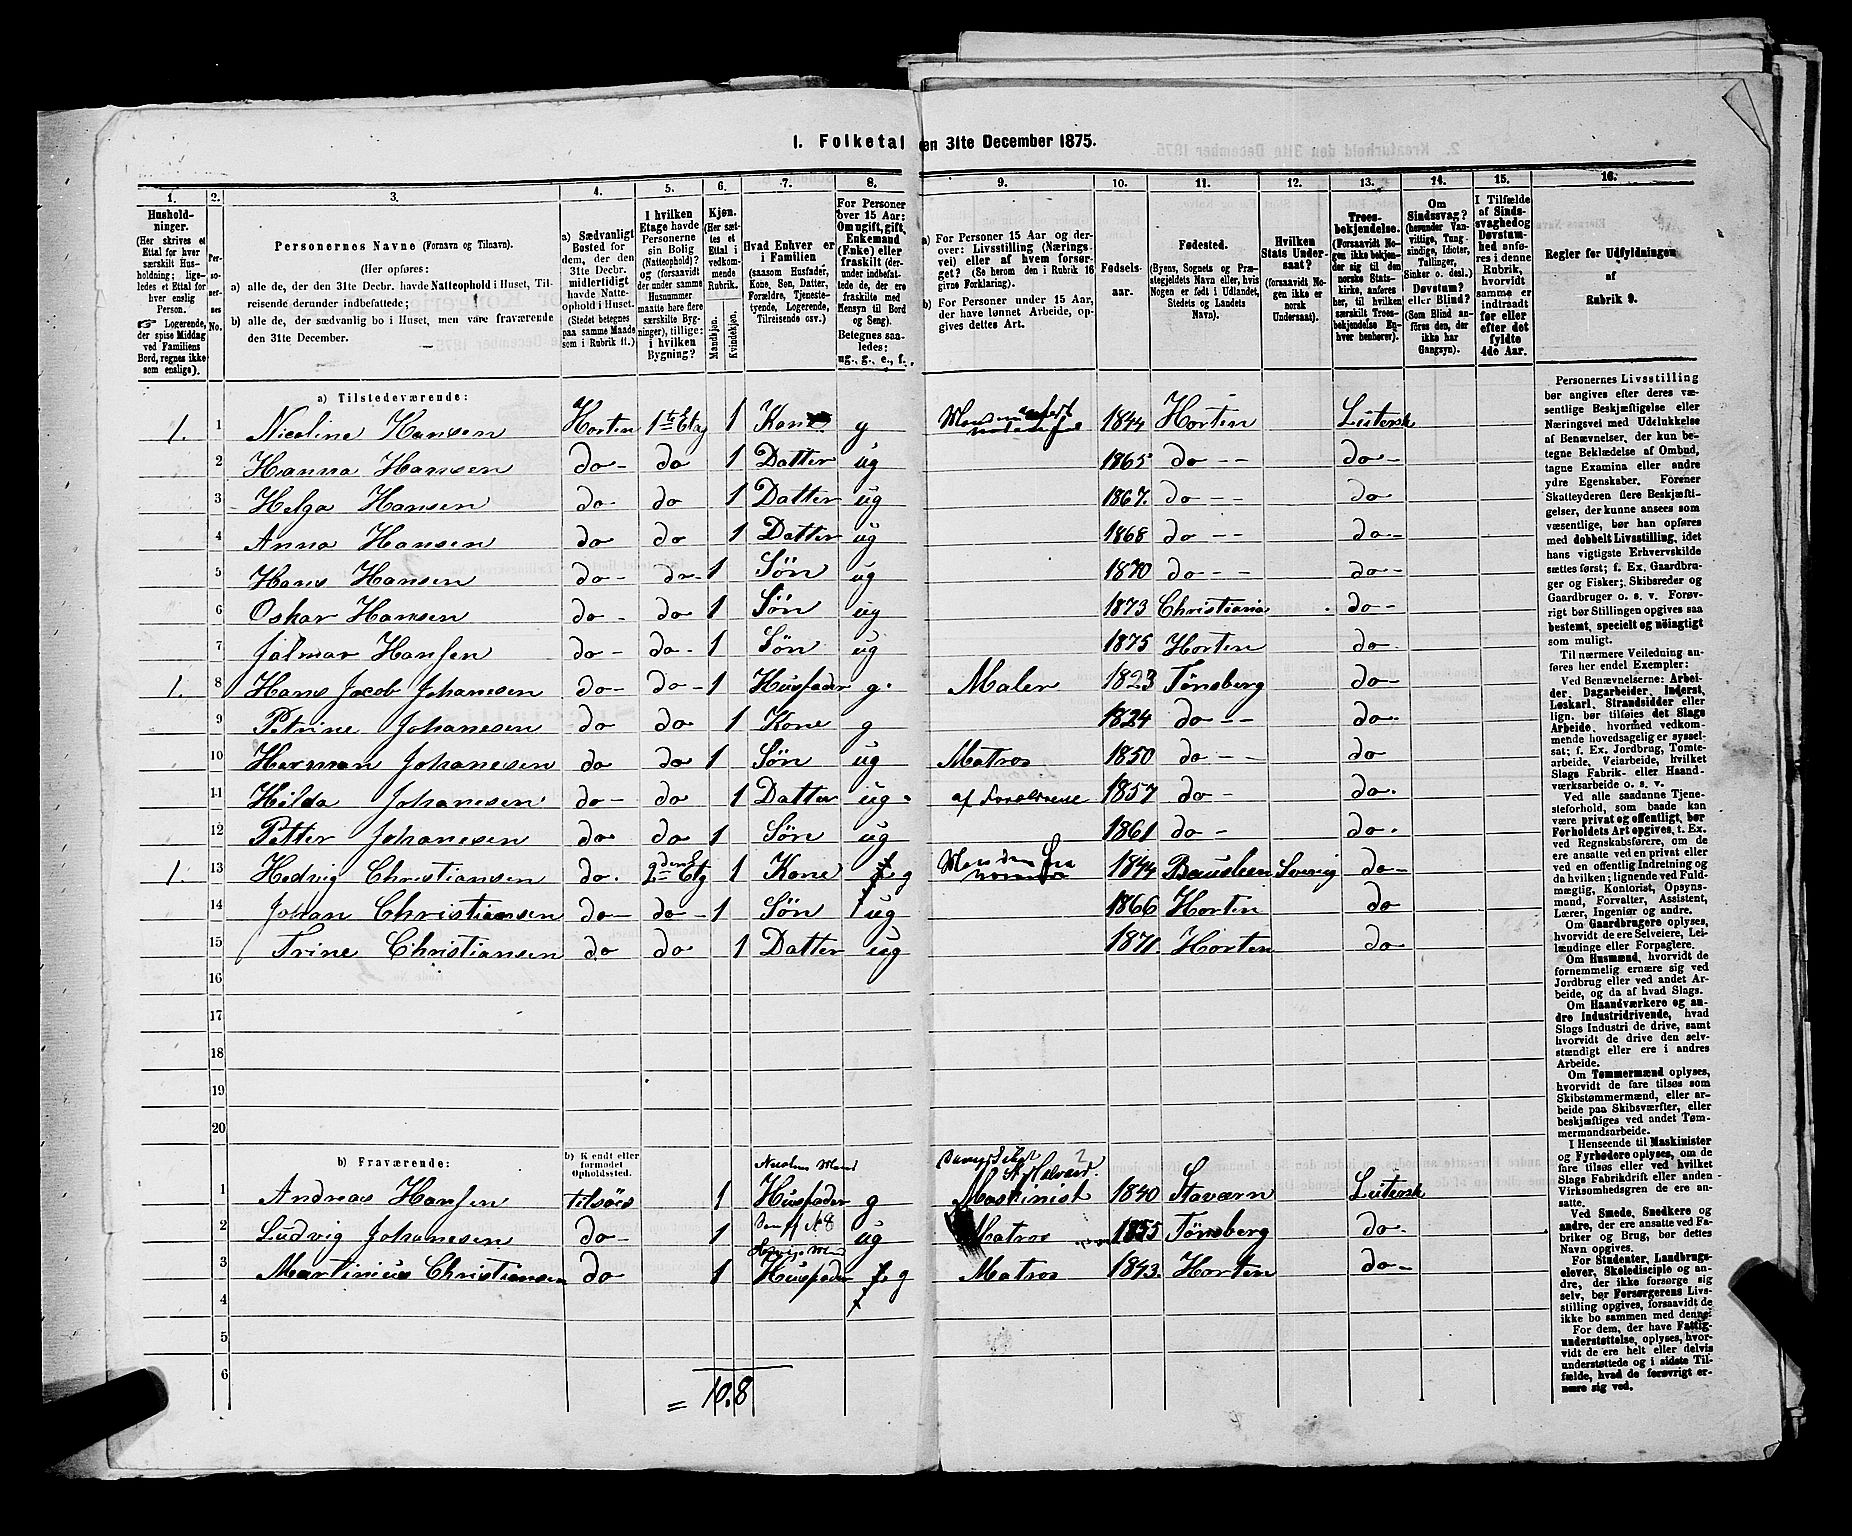 1. Folketal den 31te December 1875.
1. 2. 3. 4. 5. 6. 7. 8. 9. 10. 11. 12. 13. 14. 15. 16.
Hushold-
ninger.
(Her skrives et
Ettal for hver
særskilt Hus-
holdning; lige-
ledes et Ettal for
hver enslig
Person.
☞ Logerende,
der spise Middag
ved Familiens
Bord, regnes ikke
som enslige).
Per-
so-
ner-
nes
No.
Personernes Navne (Fornavn og Tilnavn).
(Her opføres:
a) alle de, der den 31te Decbr. havde Natteophold i Huset, Til-
reisende derunder indbefattede;
b) alle de, der sædvanlig bo i Huset, men vare fraværende
den 31te December.
a) Sædvanligt
Bosted for
dem, der den
31te Decbr.
midlertidigt
havde Natte-
ophold i Huset.
(Stedet betegnes
paa samme Maade
som i Rubrik 11.)
I hvilken
Etage havde
Personerne
sin Bolig
(Natteophold)?
og (forsaavidt
der under samme
Husnummer
maatte høre flere
særskilte Byg-
ninger), tillige:
i hvilken
Bygning?
Kjøn.
(Her sæt-
tes et
Ettal i
vedkom-
mende
Rubrik.
Mandkjøn.
Kvindekjøn.
Hvad Enhver er
i Familien
(saasom Husfader,
Kone, Søn, Datter,
Forældre, Tjeneste-
tyende, Logerende,
Tilreisende osv.)
For Personer
over 15 Aar:
Om ugift, gift,
Enkemand
(Enke) eller
fraskilt (der-
under indbefat-
tede de, der ere
fraskilte med
Hensyn til Bord
og Seng).
Betegnes saa-
ledes:
ug., g., e., f.
a) For Personer 15 Aar og der-
over: Livsstilling (Nærings-
vei) eller af hvem forsør-
get? (Se herom den i Rubrik 16
givne Forklaring).
b) For Personer under 15 Aar,
der have lønnet Arbeide, op-
gives dettes Art.
Fødsels-
aar.
Fødested.
(Byens, Sognets og Præ-
stegjeldets Navn eller, hvis
Nogen er født i Udlandet,
Stedets og Landets
Navn).
Hvilken
Stats Under-
saat?
(forsaavidt No-
gen ikke er
norsk
Undersaat).
Troes-
bekjendelse.
(Forsaavidt No-
gen ikke bekjen-
der sig til den
norske Stats-
kirke, anføres
her, til hvilken
særskilt Troes-
bekjendelse En-
hver henhører).
Om
Sindssvag?
(herunder Van-
vittige, Tung-
sindige, Idioter,
Tullinger,
Sinker o. desl.)
Døvstum?
eller Blind?
(Som Blind an-
føres den, der
ikke har
Gangsyn).
I Tilfælde
af Sinds-
svaghed og
Døvstum-
hed anfø-
res i denne
Rubrik,
hvorvidt
samme er
indtraadt
før eller
efter det
fyldte
4de Aar.
Regler for Udfyldningen
af
Rubrik 9.
a) Tilstedeværende:
1. 1 Nicoline Hansen Horten 1ste Etg 1 Kone g 1844 Horten Lutersk
2 Hanna Hansen do- do 1 Datter ug 1865 do - - do-
3 Helga Hansen do- do 1 Datter ug 1867. do - - do
4 Anna Hansen do do 1 Datter ug 1868 do - - do-
5 Hans Hansen do- do- 1 Søn ug 1870 do - - do-
6 Oskar Hansen do- do 1 Søn ug 1873 Christiania do-
7 Jalmar Hansen do- do- 1 Søn ug 1875 Horten do
1. 8 Hans Jacob Johanesen do- do- 1 Husfader g. Maler 1823 Tønsberg do-
9 Petrine Johanesen do do 1 Kone g 1824 do - - do.
10 Herman Johanesen do do 1 Søn ug Matros 1850 do - - do
11 Hilda Johanesen do- do 1 Datter ug. af Forældrene 1857 do- do.
12 Petter Johanesen do. do 1 Søn ug 1861 do- do.
1. 13 Hedvig Christiansen do. 2den Etg 1 Kone g 1844 Sverrig do-
14 Johan Christiansen do- do- 1 Søn ug 1866 Horten do
15 Trine Christiansen do do 1 Datter ug 1871. Horten do
16
17
18
19
20
b) Fraværende:
b) Kendt eller
formodet
Opholdssted.
1 Andreas Hansen tilsøes 1 Husfader g Maskinist 1840 Staværn Lutersk
2 Ludvig Johanesen do- 1 ug Matros 1855 Tønsberg do-
3 Martinius Christiansen do 1 Husfader g Matros 1843. Horten do-
4
5
6
= 10.8
Personernes Livsstilling
bør angives efter deres væ-
sentlige Beskjæftigelse eller
Næringsvei med Udelukkelse
af Benævnelser, der kun be-
tegne Beklædelse af Ombud,
tagne Examina eller andre
ydre Egenskaber. Forener
Skatteyderen flere Beskjæfti-
gelser, der kunne ansees som
væsentlige, bør han opføres
med dobbelt Livsstilling, idet
hans vigtigste Erhvervskilde
sættes først; f. Ex. Gaardbru-
ger og Fisker; Skibsreder og
Gaardbruger o. s. v. Forøv-
rigt bør Stillingen opgives saa
bestemt, specielt og nöiagtigt
som muligt.
Til nærmere Veiledning an-
føres her endel Exempler:
Ved Benævnelserne: Arbei-
der, Dagarbeider, Inderst,
Løskarl, Strandsidder eller
lign. bør tilføies det Slags
Arbeide, hvormed vedkom-
mende hovedsagelig er syssel-
sat; f. Ex. Jordbrug, Tomte-
arbeide, Veiarbeide, hvilket
Slags Fabrik- eller Haand-
værksarbeide o. s. v.
Ved alle saadanne Tjene-
steforhold, som baade kan
være privat og offentligt, bør
Forholdets Art opgives, t. Ex.
ved Regnskabsførere, om de
ere ansatte ved en privat eller
en offentlig Indretning og
da hvilken; lignende ved Fuld-
mægtig, Kontorist, Opsyns-
mand, Forvalter, Assistent,
Lærer, Ingeniør og andre.
Om Gaardbrugere oplyses,
hvorvidt de ere Selveiere, Lei-
lændinge eller Forpagtere.
Om Husmænd, hvorvidt de
fornemmelig ernære sig ved
Jordbrug eller ved andet Ar-
beide, og da af hvad Slags.
Om Haandværkere og an-
dre Industridrivende, hvad
Slags Industri de drive, samt
hvorvidt de drive den selv-
stændigt eller ere i andres
Arbeide.
Om Tømmermænd oplyses,
hvorvidt de fare tilsøs som
Skibstømmermænd, eller ar-
beide paa Skibsværfter, eller
beskjæftiges ved andet Tøm-
mermandsarbeide.
I Henseende til Maskinister
og Fyrbødere oplyses, om de
fare tilsøs eller ved hvilket
Slags Fabrikdrift eller anden
Virksomhedsgren de ere an-
satte.
Ved Smede, Snedkere og
andre, der ere ansatte ved Fa-
briker og Brug, bør dettes
Navn opgives.
For Studenter, Landbrugs-
elever, Skoledisciple og an-
dre, der ikke forsørge sig
selv, bør Forsørgerens Livs-
stilling opgives, forsaavidt de
ikke bo sammen med denne.
For dem, der have Fattig-
understøttelse, oplyses, hvor-
vidt de ere helt eller delvis
understøttede og i sidste Til-
fælde, hvad de forøvrigt er-
nære sig ved.